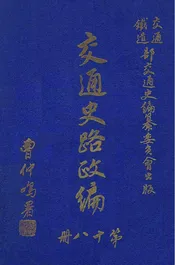 交通
鐵道
部交通史編纂委員會出版
交通史路政編
曾仲鳴署
冊八十第